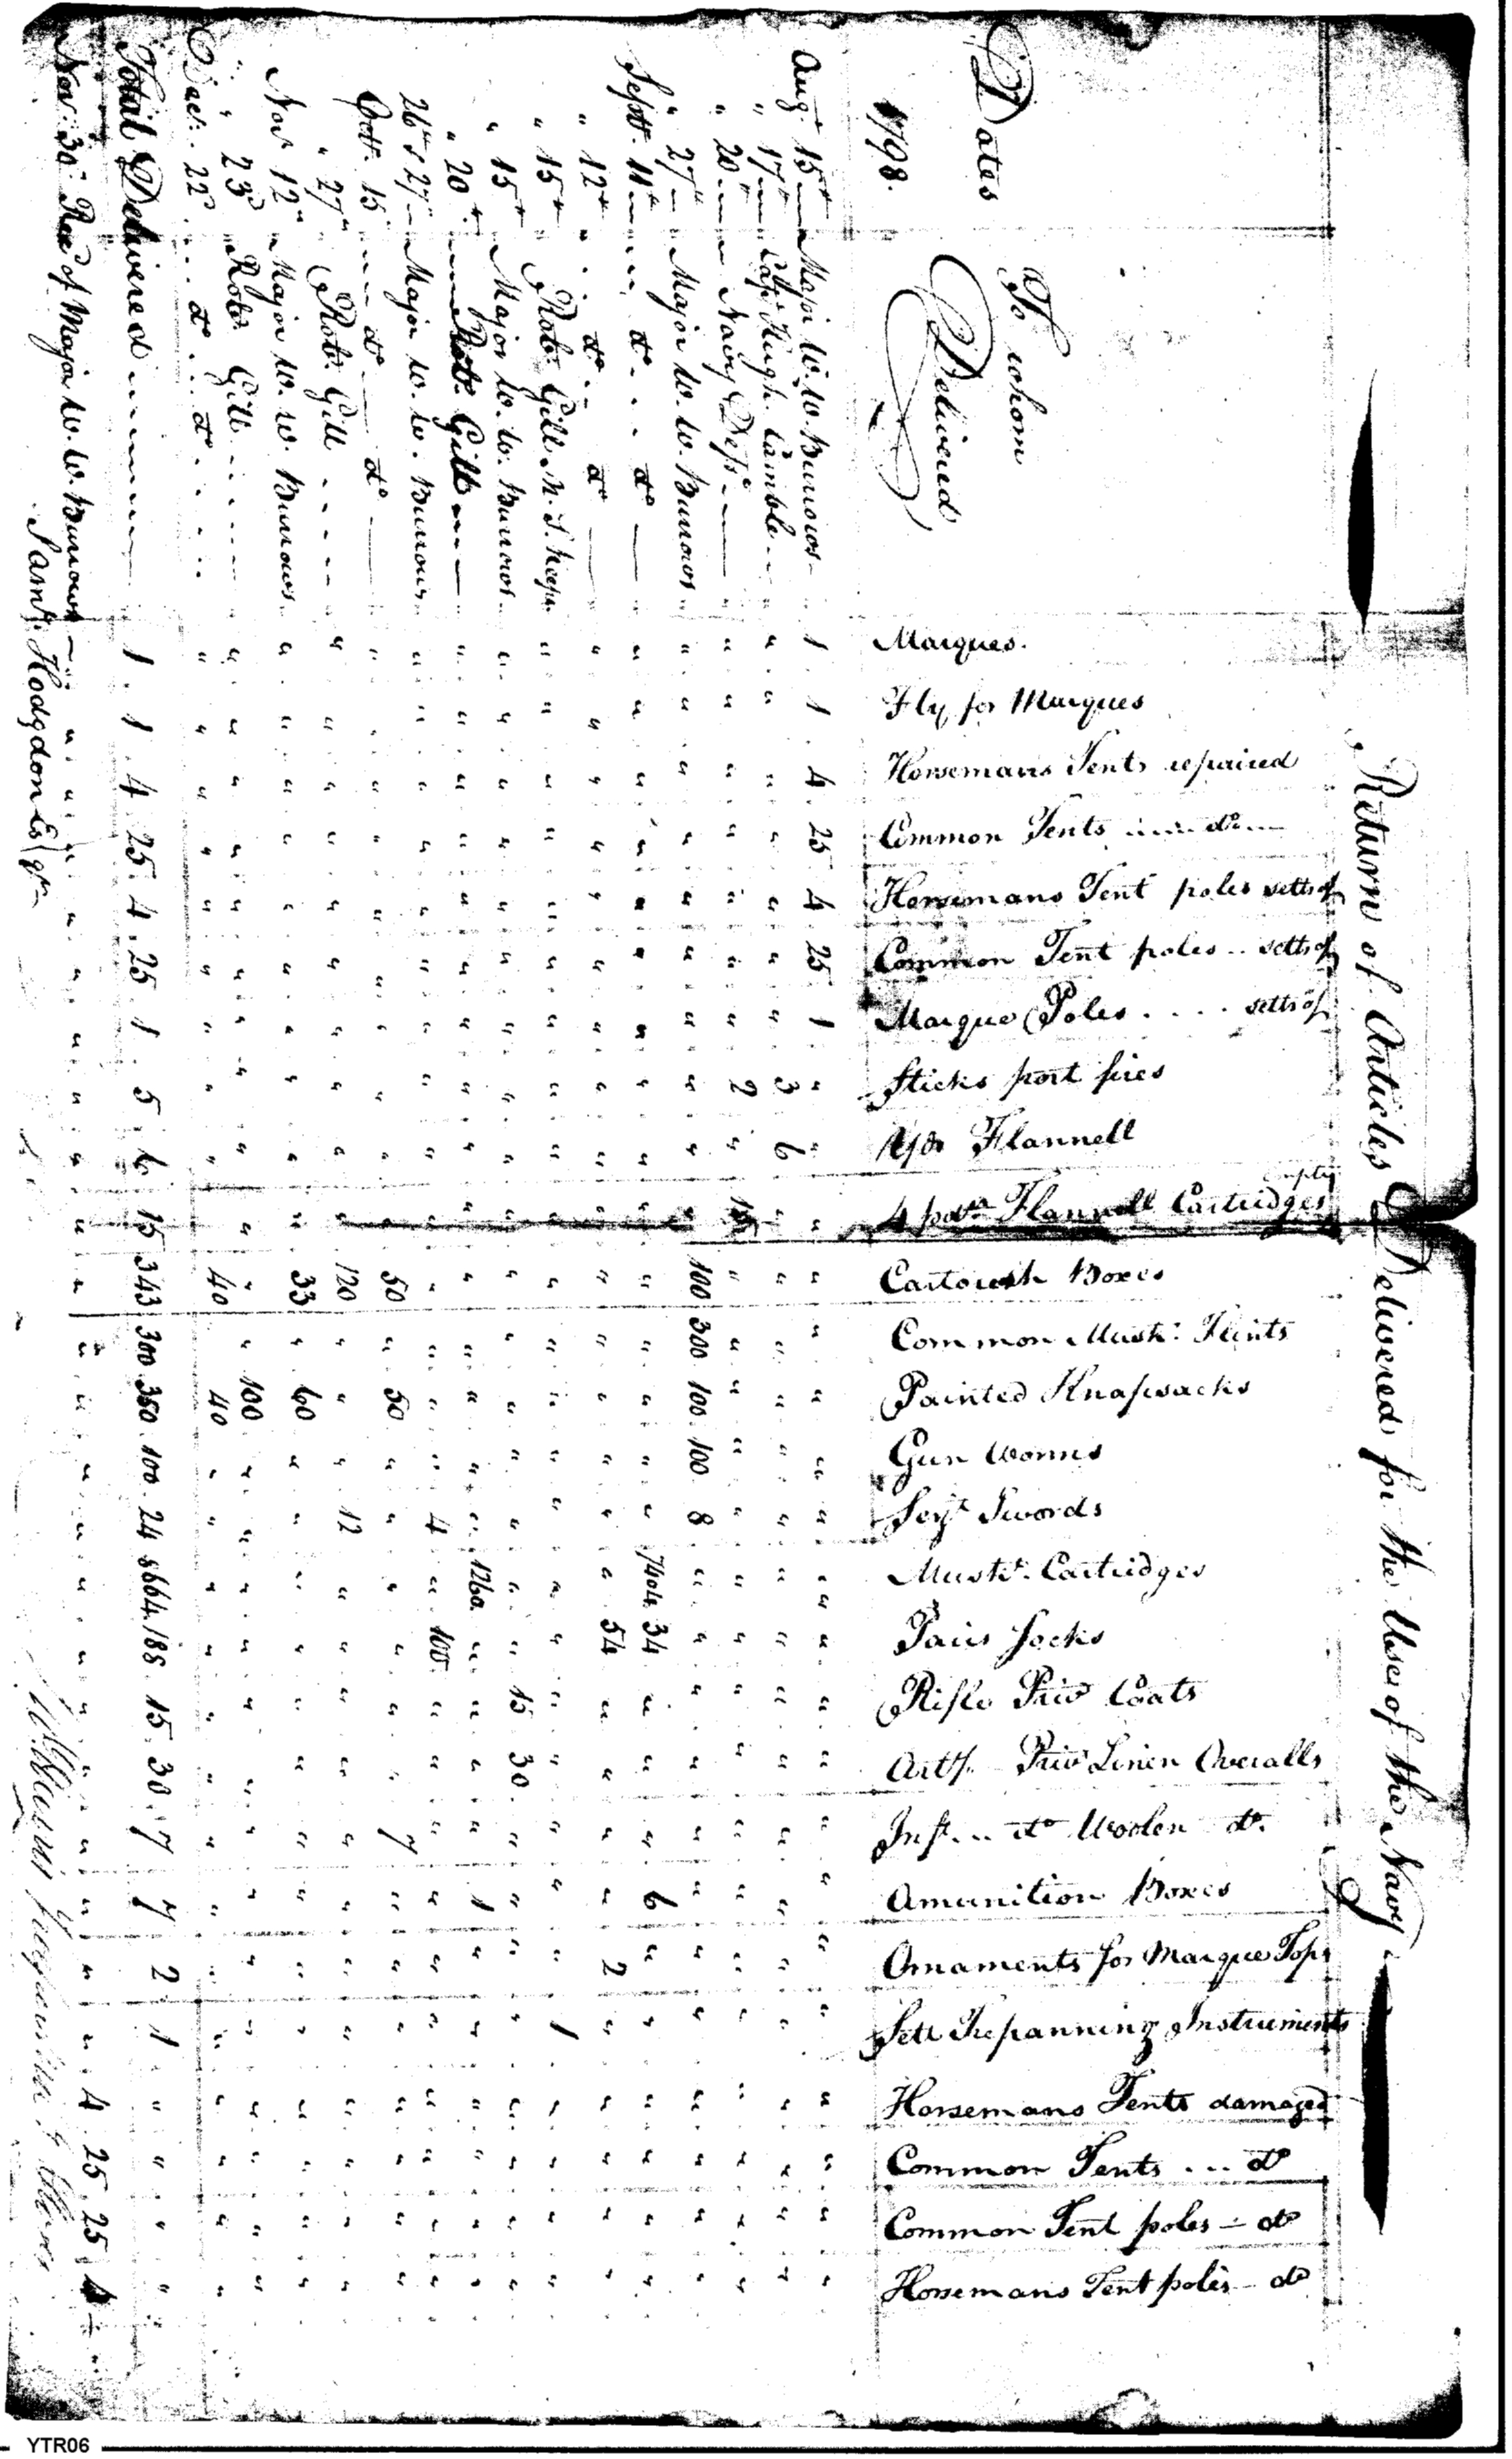 Return of Articles Delivered for the Use of the Navy
Dates
To whom Delivered
Marques.
Fly for Marques
Horsemans Tents repaired
Common Tents ..... do ....
Horsemans Tent poles setts of
Common Tent poles .. setts of
Marque Poles .... setts of
Sticks port fires
Yds Flannell
4 pdr Flannell Cartridges empty
Cartouch Boxes
Common Muskt. Flints
Painted Knapsacks
Gun Worms
Sergt Swords
Muskt. Cartridges
Pairs Socks
Rifle Priv Coats
Arty. Priv Linen Overalls
Inf. .. do Woolen do.
Amunition Boxes
Ornaments for Marque Tops
Sett Trepanning Instruments
Horsemans Tents damaged
Common Tents ... do
Common Tent poles - do
Horsemans Tent poles - do
1798.
Augt 15th Major W. W. Burrows 1 1 4 25 4 25 1 " " " " " " " " " " " " " " " " " " " "
" 17th Capt Hugh Camble " " " " " " " 3 6 " " " " " " " " " " " " " " " " " "
" 20 Navy Dept " " " " " " " 2 " 15 " " " " " " " " " " " " " " " " "
" 27 Major W. W. Burrows " " " " " " " " " " 100 300 100 100 8 " " " " " " " " " " " "
Sept. 11th do do " " " " " " " " " " " " " " " 7404 34 " " " 6 " " " " " "
" 12th do do " " " " " " " " " " " " " " " " 54 " " " " 2 " " " " "
" 15th Robt. Gill M. S. Keepr " " " " " " " " " " " " " " " " " " " " " " 1 " " " "
" 15th Major W. W. Burrows " " " " " " " " " " " " " " " " " 15 30 " " " " " " " "
" 20th Robt. Gill " " " " " " " " " " " " " " " 1260 " " " " 1 " " " " " "
26th & 27th Major W. W. Burrows " " " " " " " " " " " " " " 4 " 100 " " " " " " " " " "
Octr. 15 do do " " " " " " " " " " 50 " 50 " " " " " " 7 " " " " " " "
" 27th Robt. Gill " " " " " " " " " " 120 " " " 12 " " " " " " " " " " " "
Novr 12th Major W. W. Burrows " " " " " " " " " " 33 " 60 " " " " " " " " " " " " " "
" 23d Robt Gill " " " " " " " " " " " " 100 " " " " " " " " " " " " " "
Decr. 22d do do " " " " " " " " " " 40 " 40 " " " " " " " " " " " " " "
Total Delivered 1 1 4 25 4 25 1 5 6 15 343 300 350 100 24 8664 188 15 30 7 7 2 1 " " " "
Nov: 30th Recd of Major W. W. Burrows " " " " " " " " " " " " " " " " " " " " " " " 4 25 25 4
Saml. Hodgdon Esqr
YTR06